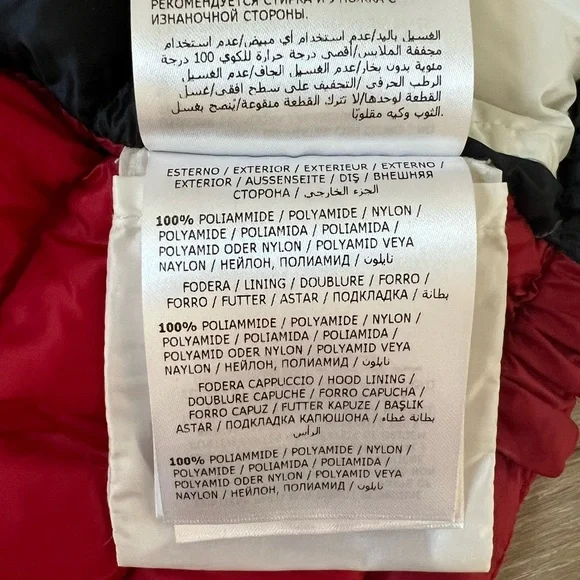 РЕКОМЕНДУЕТСЯ СТИРКА И УТЮЖКА С
ИЗНАНОЧНОЙ СТОРОНЫ.
الغسيل باليد/عدم استخدام أي مبيض/عدم استخدام
مجففة الملابس/أقصى درجة حرارة للكوي 100 درجة
مئوية بدون بخار/عدم الغسيل الجاف/عدم الغسيل
الرطب الحرفي/التجفيف على سطح افقى/غسل
القطعة لوحدها/لا تترك القطعة منقوعة/يُنصح بغسل
الثوب وكيه مقلوبًا.
ESTERNO / EXTERIOR / EXTERIEUR / EXTERNO /
EXTERIOR / AUSSENSEITE / DIŞ / ВНЕШНЯЯ
СТОРОНА / الجزء الخارجي
100% POLIAMMIDE / POLYAMIDE / NYLON /
POLYAMIDE / POLIAMIDA / POLIAMIDA /
POLYAMID ODER NYLON / POLYAMID VEYA
NAYLON / НЕЙЛОН, ПОЛИАМИД / نايلون
FODERA / LINING / DOUBLURE / FORRO /
FORRO / FUTTER / ASTAR / ПОДКЛАДКА / بطانة
100% POLIAMMIDE / POLYAMIDE / NYLON /
POLYAMIDE / POLIAMIDA / POLIAMIDA /
POLYAMID ODER NYLON / POLYAMID VEYA
NAYLON / НЕЙЛОН, ПОЛИАМИД / نايلون
FODERA CAPPUCCIO / HOOD LINING /
DOUBLURE CAPUCHE / FORRO CAPUCHA /
FORRO CAPUZ / FUTTER KAPUZE / BAŞLIK
ASTAR / ПОДКЛАДКА КАПЮШОНА / بطانة غطاء
الرأس
100% POLIAMMIDE / POLYAMIDE / NYLON /
POLYAMIDE / POLIAMIDA / POLIAMIDA /
POLYAMID ODER NYLON / POLYAMID VEYA
NAYLON / НЕЙЛОН, ПОЛИАМИД / نايلون